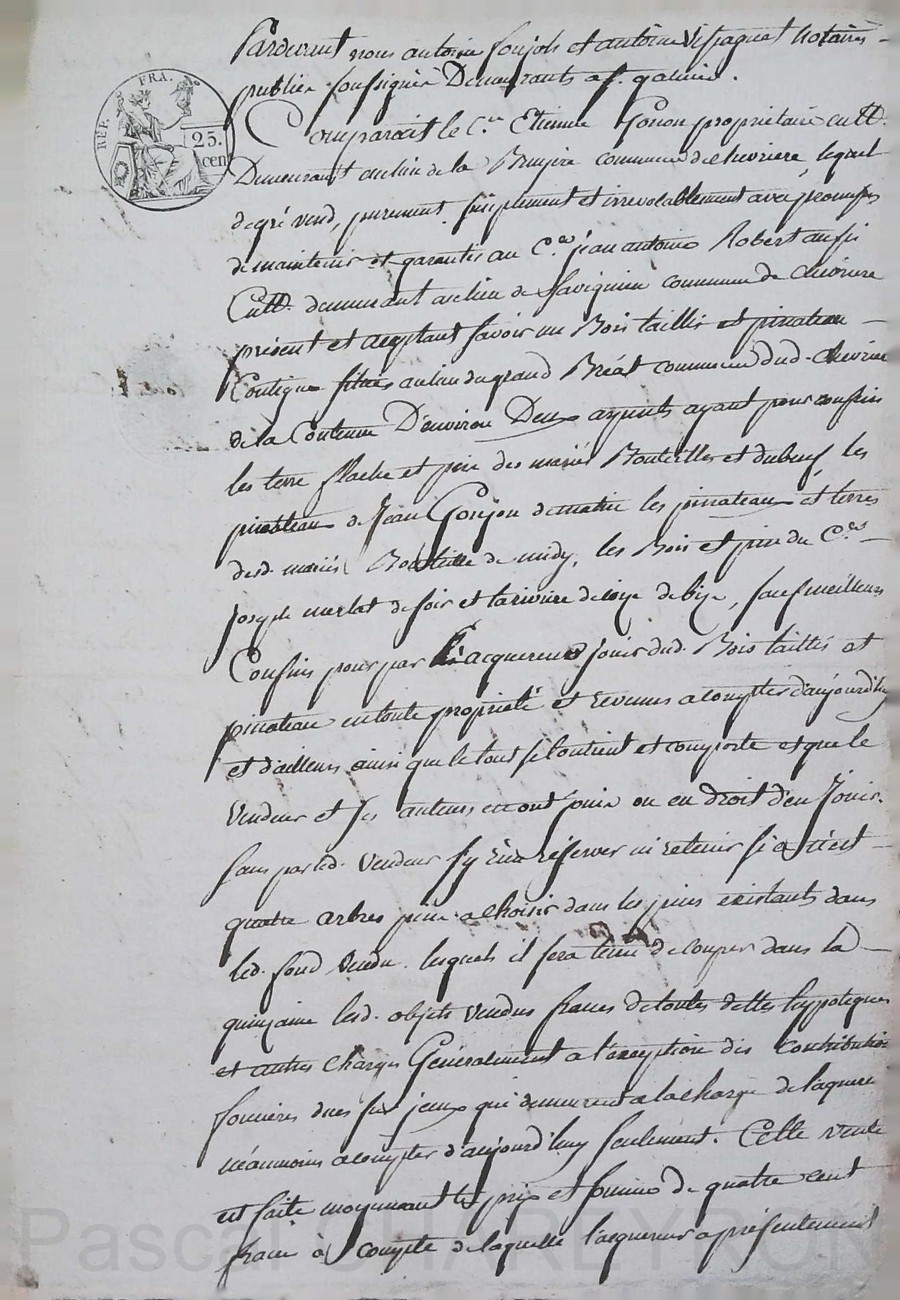 REP. FRA.
25.
cen
Pardevant nous antoine soujols et antoine Vespagnet Notaires
publics soussignés Demeurants a s.t galmier.
Comparait le C.en Etienne Gonon propriétaire cult.
Demeurant au lieu de la Bruyere commune de chevriere, lequel
de gré vend, purement, simplement et irrevolablement avec promesses
de maintenir et garantir au C.en jean antoine Robert aussi
Cult. demeurant au lieu de Savignieu commune de chevriere
présent et aceptant savoir un Bois taillis et pinateau
Contigus situés au lieu du grand Bréat commune dud. chevriere
de la Contenue D'environ Deux arpents ayant pour confins
les terre flache et pins des mariés Bouteilles et dubeuf, les
pinateau de Jean Goujon de matin les pinateau et terres
desd. mariés Bouteille de midy, les Bois et pins du C.en
joseph merlat de soir et la riviere de coize de bize, sauf meilleurs
Confins pour par l'acquereur jouir dud. Bois taillis et
pinateau en toute propriété et revenus a compter d'aujourd'huy
et d'ailleurs ainsi que le tout se Contient et comporte et que le
Vendeur et ses auteurs en ont jouir ou eu droit d'en Jouir.
sans par led. Vendeur s'y rien réserver ni retenir si ce n'est
quatre arbres pins a choisir dans les pins existants dans
led. fond Vendu. lesquels il sera tenu de couper dans la
quinzaine lesd. objets Vendus francs de toutes dettes hypoteques
et autres charges Généralement a l'exception des Contributions
foncières dues sur jceux qui demeurent a la charge de l'aquereur
néanmoins a compter d'aujourd'huy seulement. Cette vente
est faite moyennant le prix et somme de quatre cent
franc à compte de laquelle l'acquereur a présentement
Pascal CHAREYRON